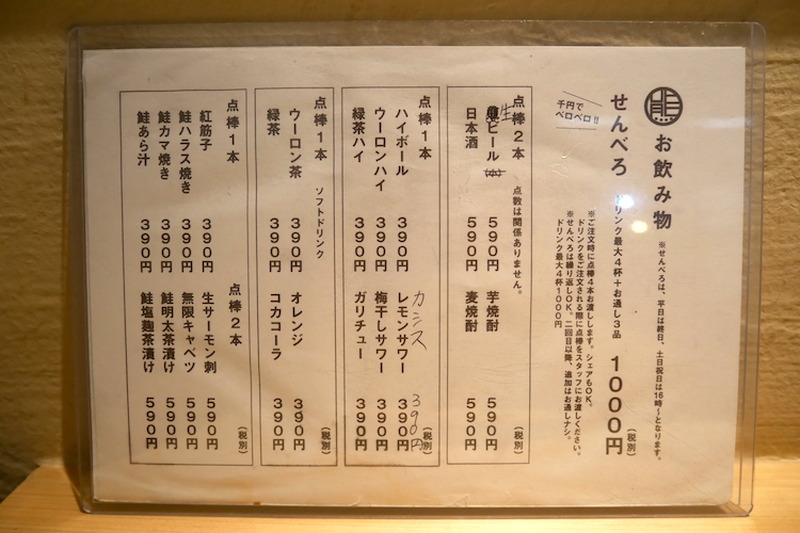 お飲み物
※せんべろは、平日は終日、土日祝日は16時〜となります。
せんべろ ドリンク最大4杯+お通し3品 1000円
(税別)
千円で
ベロベロ!!
※ご注文時に点棒4本お渡しします。シェアもOK。
ドリンクをご注文される際に点棒をスタッフにお渡しください。
※せんべろは繰り返しOK。二回目以降、追加はお通しナシ。
ドリンク最大4杯1000円
点棒2本 点数は関係ありません。 (税別)
生ビール 590円 芋焼酎 590円
日本酒 590円 麦焼酎 590円
点棒1本 カシス 390円 (税別)
ハイボール 390円 レモンサワー 390円
ウーロンハイ 390円 梅干しサワー 390円
緑茶ハイ 390円 ガリチュー 390円
点棒1本 ソフトドリンク (税別)
ウーロン茶 390円 オレンジ 390円
緑茶 390円 コカコーラ 390円
点棒1本 点棒2本 (税別)
紅筋子 390円 生サーモン刺 590円
鮭ハラス焼き 390円 無限キャベツ 590円
鮭カマ焼き 390円 鮭明太茶漬け 590円
鮭あら汁 390円 鮭塩麹茶漬け 590円